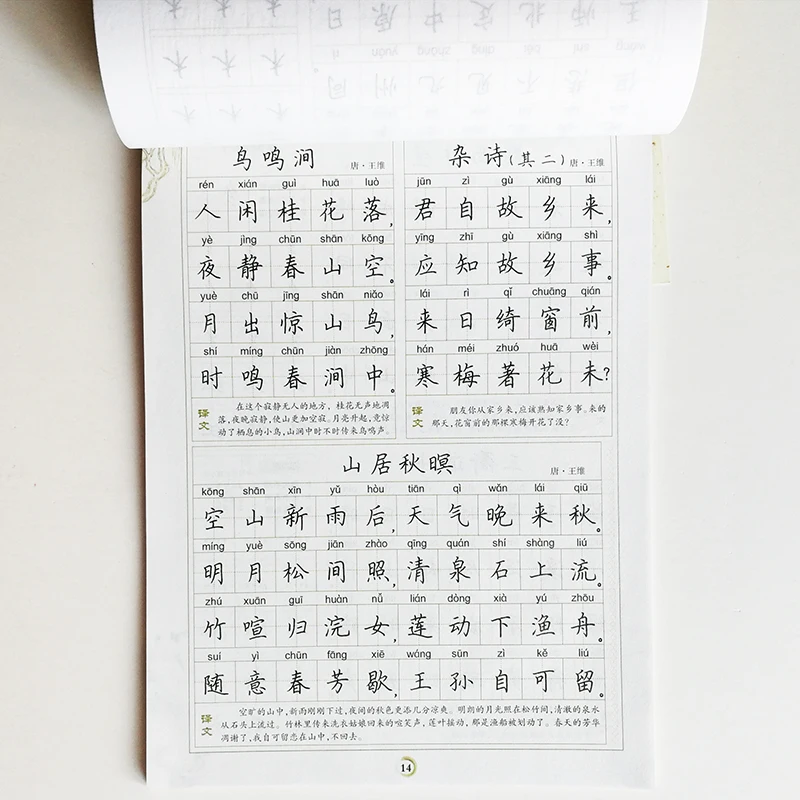 鸟鸣涧
唐·王维
rén xián guì huā luò
人闲桂花落,
yè jìng chūn shān kōng
夜静春山空。
yuè chū jīng shān niǎo
月出惊山鸟,
shí míng chūn jiàn zhōng
时鸣春涧中。
译文
在这个寂静无人的地方,桂花无声地凋
落,夜晚寂静,使山更加空寂。月亮升起,竟惊
动了栖息的小鸟,山涧中时不时传来鸟鸣声。
杂诗(其二)
唐·王维
jūn zì gù xiāng lái
君自故乡来,
yīng zhī gù xiāng shì
应知故乡事。
lái rì qǐ chuāng qián
来日绮窗前,
hán méi zhuó huā wèi
寒梅著花未?
译文
朋友你从家乡来,应该熟知家乡事。来的
那天,花窗前的那棵寒梅开花了没?
山居秋暝
唐·王维
kōng shān xīn yǔ hòu tiān qì wǎn lái qiū
空山新雨后,天气晚来秋。
míng yuè sōng jiān zhào qīng quán shí shàng liú
明月松间照,清泉石上流。
zhú xuān guī huàn nǚ lián dòng xià yú zhōu
竹喧归浣女,莲动下渔舟。
suí yì chūn fāng xiē wáng sūn zì kě liú
随意春芳歇,王孙自可留。
译文
空旷的山中,新雨刚刚下过,夜间的秋色更添几分凉爽。明朗的月光照在松竹间,清澈的泉水
从石头上流过。竹林里传来洗衣姑娘回来的喧笑声,莲叶摇动,那是渔船被划动了。春天的芳华
凋谢了,我自可留恋在山中,不回去。
14